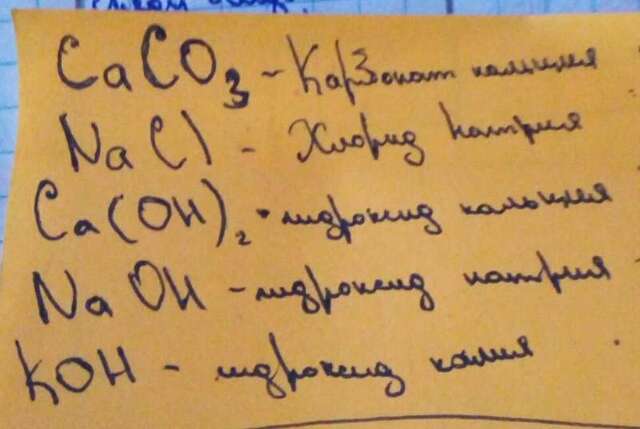 CaCO₃ - Карбонат кальция
NaCl - Хлорид Натрия
Ca(OH)₂ - гидроксид кальция
NaOH - гидроксид натрия
KOH - гидроксид калия